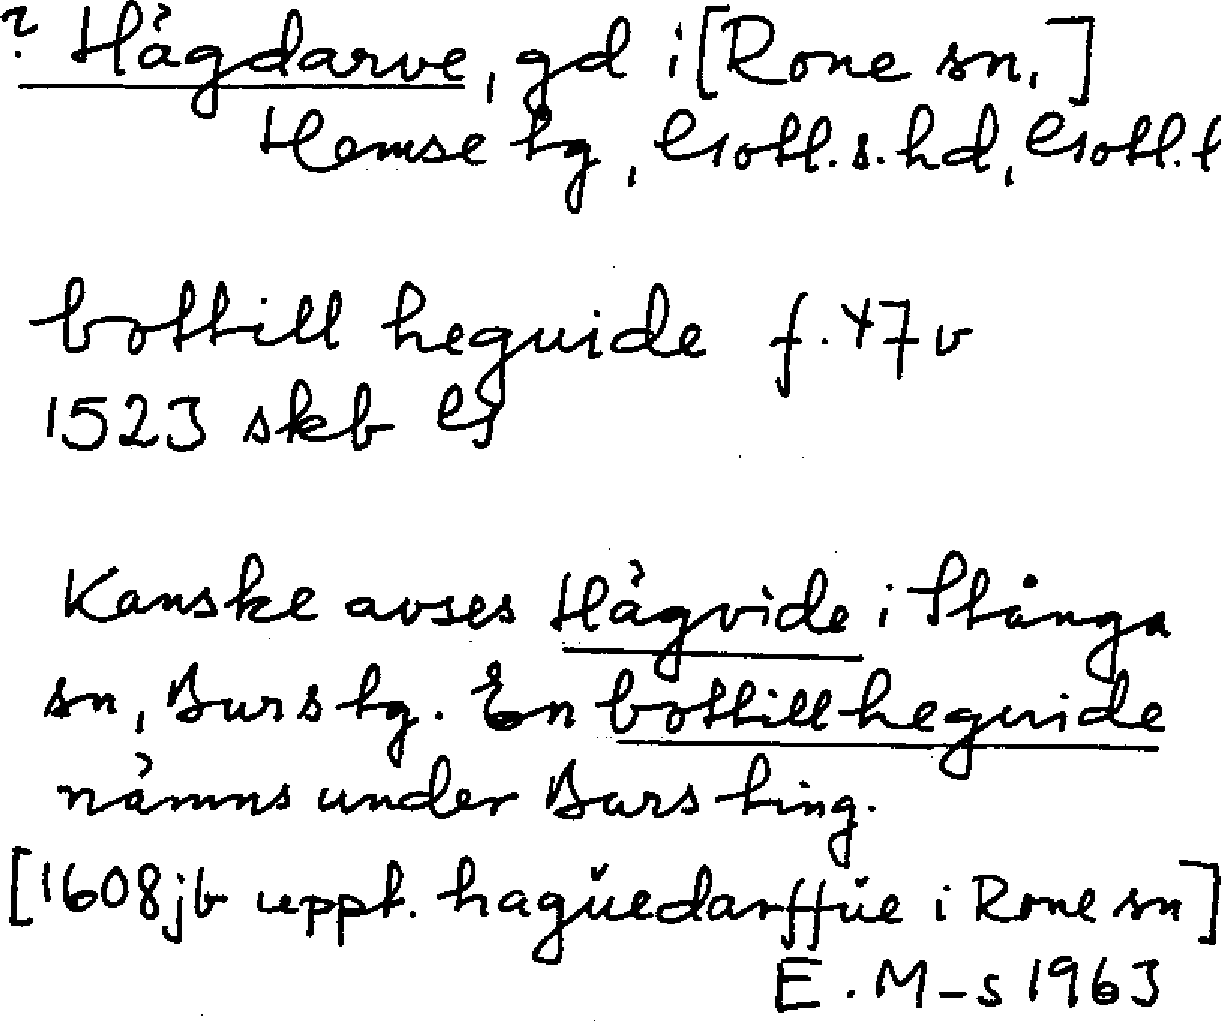 ? Hägdarve, gd i [Rone sn,]
Hemse tg, Gotl. s. hd, Gotl. l
bottill heguide f. 47 v
1523 skb G
Kanske avses Hägvide i Stånga
sn, Burs tg. En bottill heguide
nämns under Burs ting.
[1608 jb uppt. hagŭedarffŭe i Rone sn]
E. M-s 1963